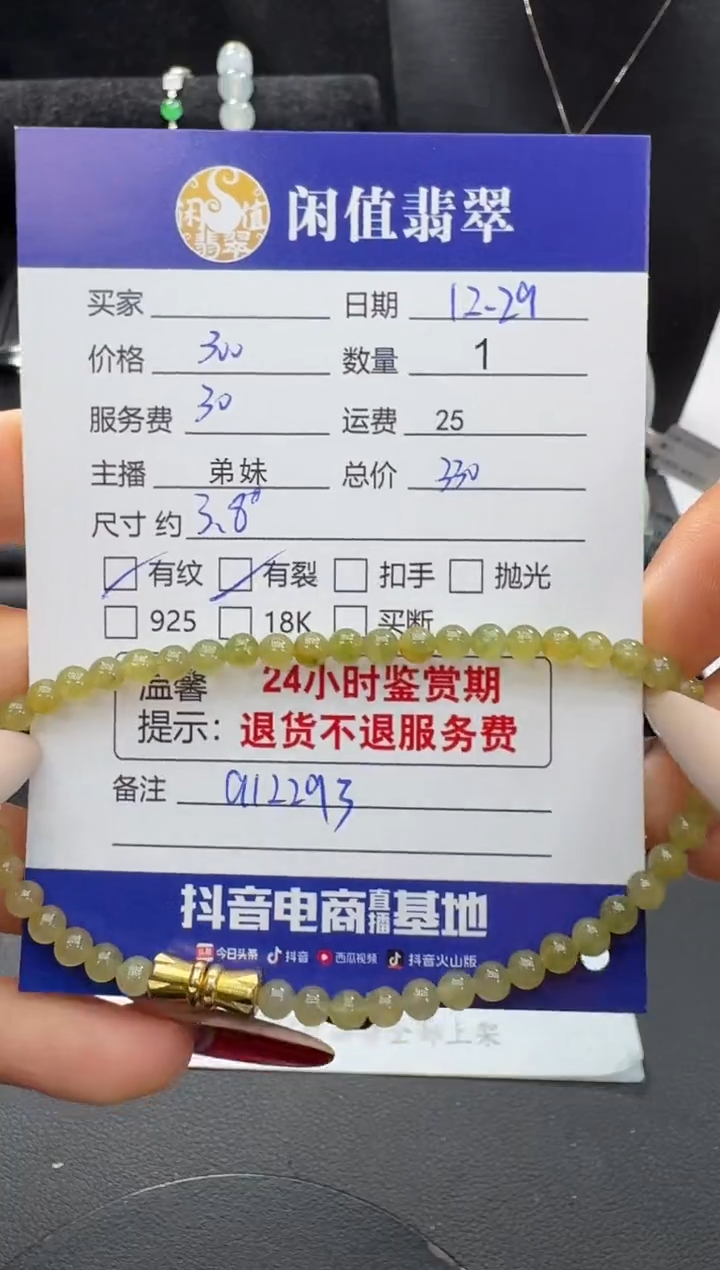 闲值翡翠
闲值翡翠
买家 日期 12-29
价格 300 数量 1
服务费 30 运费 25
主播 弟妹 总价 330
尺寸 约 3.8
有纹 有裂 扣手 抛光
925 18K 买断
温馨 24小时鉴赏期
提示: 退货不退服务费
备注 a112293
抖音电商直播基地
头条 今日头条 抖音 西瓜视频 抖音火山版